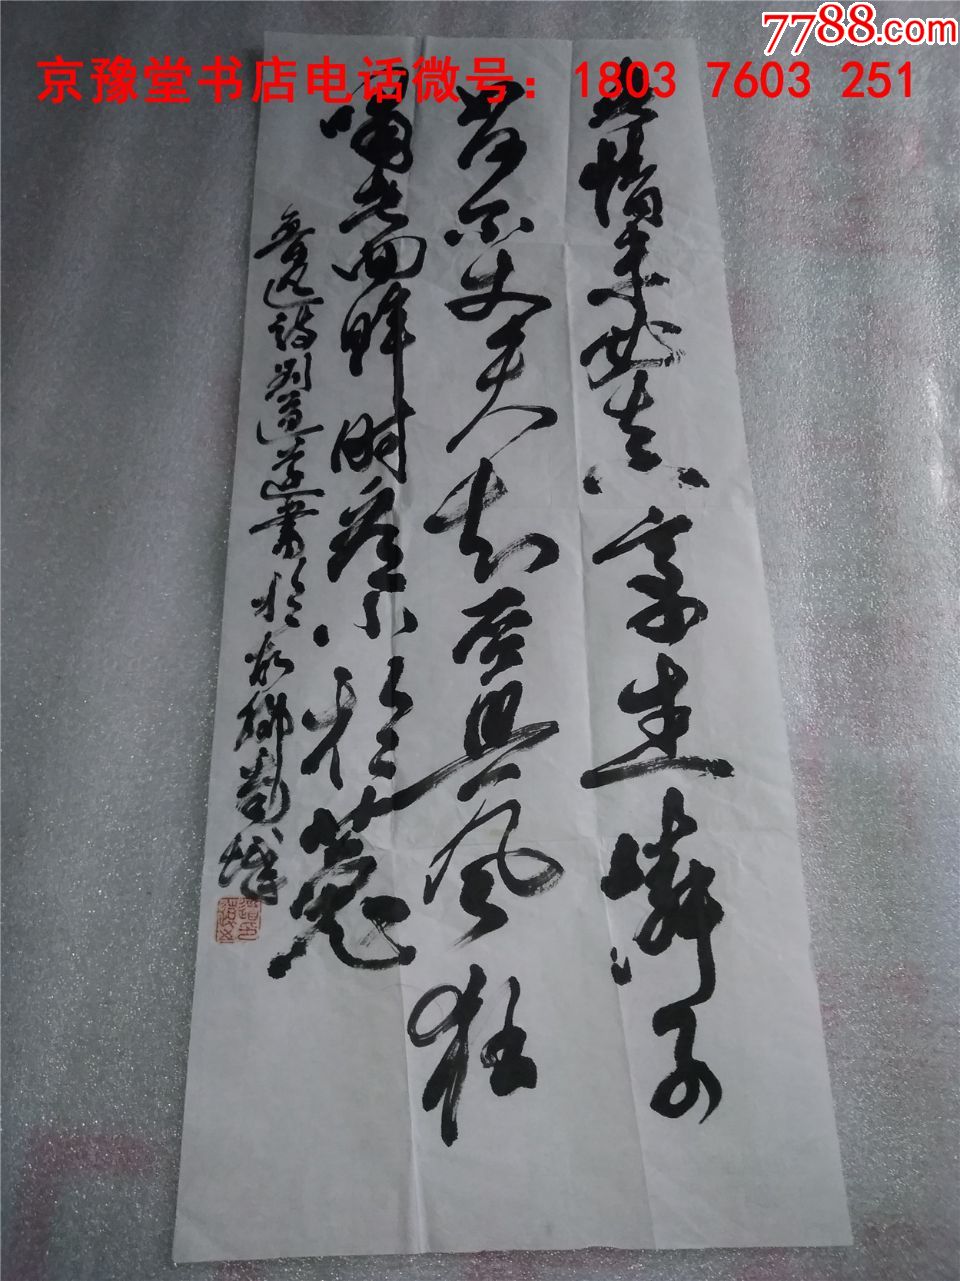 7788.com
京豫堂书店电话微号：1803 7603 251
无情未必真豪杰憐子
如何不丈夫知否興风狂
嘯者回眸时看小於菟
鲁迅诗刘道 书於